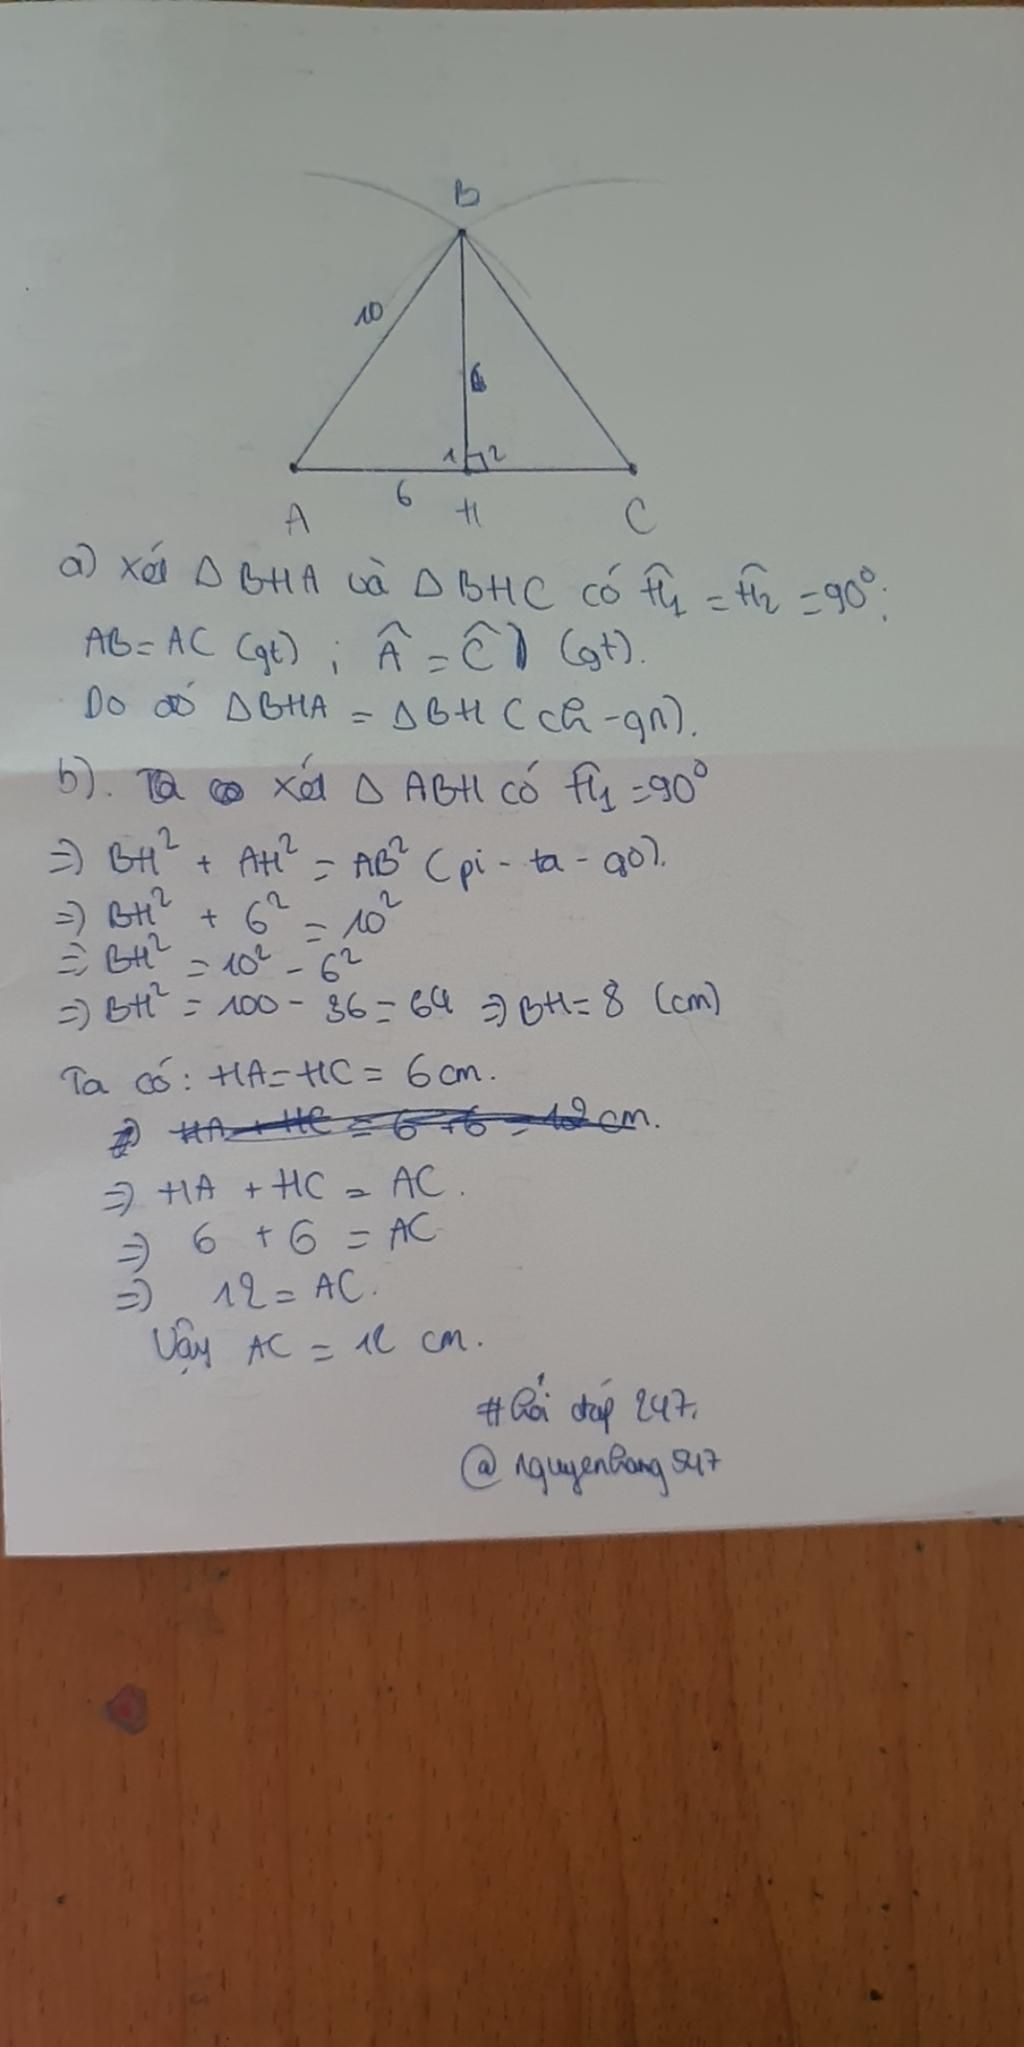 B
10
6
1 2
6
A H C
a) Xét Δ BHA và Δ BHC có Ĥ₁ = Ĥ₂ = 90°;
AB = AC (gt) ; Â = Ĉ (gt).
Do đó ΔBHA = ΔBH (ch - gn).
b). Ta có xét Δ ABH có Ĥ₁ = 90°
=> BH² + AH² = AB² (pi - ta - go).
=> BH² + 6² = 10²
=> BH² = 10² - 6²
=> BH² = 100 - 36 = 64 => BH = 8 (cm)
Ta có: HA = HC = 6 cm.
=> HA + HC = 6 + 6 = 12 cm.
=> HA + HC = AC.
=> 6 + 6 = AC
=> 12 = AC.
Vậy AC = 12 cm.
#hỏi đáp 247.
@nguyenhang947